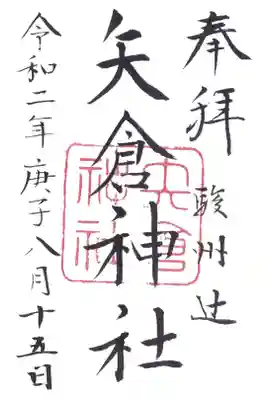 奉拝
駿州辻
矢倉神社
矢倉神社
令和二年庚子八月十五日